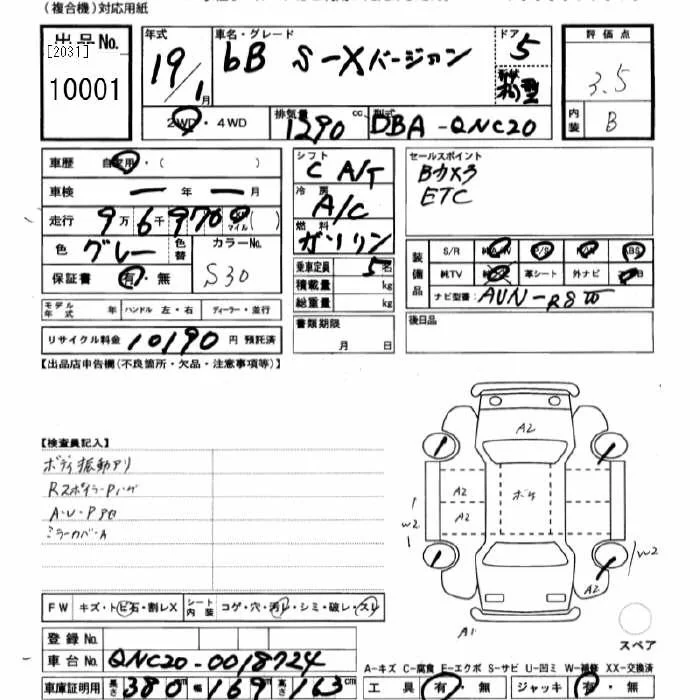 (複合機)対応用紙
出品No.
[2031]
10001
年式 19/1月
車名・グレード bB S-Xバージョン
ドア 5
形状 箱型
評価点 3.5
内装 B
2WD・4WD
排気量 1290 cc
型式 DBA-QNC20
車歴 自家用・( )
車検 ー年ー月
走行 9万6千970 マイル( )
色 グレー 色替 カラーNo. S30
保証書 有・無
モデル年式 年 ハンドル 左・右 ディーラー・並行
リサイクル料金 10190 円 預託済
シフト C A/T
冷房 A/C
燃料 ガソリン
乗車定員 5名
積載量 kg
総重量 kg
書類期限
月 日
セールスポイント
Bカメラ
ETC
装備品
S/R 純A/W P/S P/W ABS
純TV 革シート 外ナビ
ナビ型番
後日品
【出品店申告欄(不良箇所・欠品・注意事項等)】
【検査員記入】
ボディ振動アリ
RスポイラーPハゲ
A・U・P
ミラーカバーA
A2
A2
A2
ボケ
W2
W2
A1
FW キズ・トビ石・割レX シート内装 コゲ・穴・汚レ・シミ・破レ・スレ
スペア
登録No.
車台No. QNC20-0018724
車庫証明用 長さ 380 cm 幅 169 cm 高さ 163 cm
A-キズ C-腐食 E-エクボ S-サビ U-凹ミ W-補修 XX-交換済
工具 有・無 ジャッキ 有・無